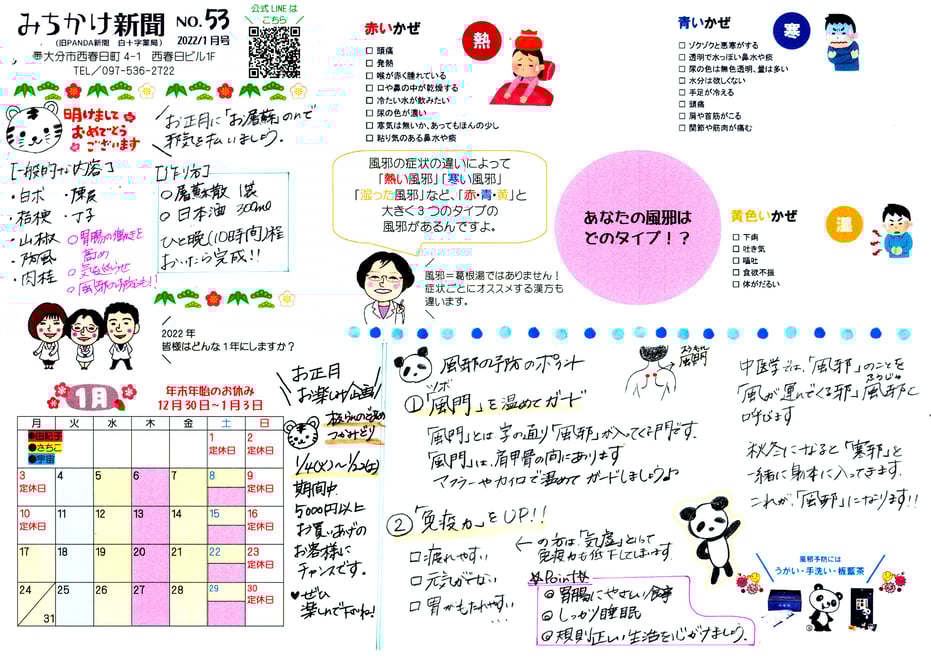 みちかけ新聞 NO.53
(旧PANDA新聞 白十字薬局) 2022/1月号
大分市西春日町 4-1 西春日ビル1F
TEL/097-536-2722
公式LINEは
こちら
明けまして
おめでとう
ございます
お正月に「お屠蘇」のんで
邪気を払いましょう。
[一般的な内容]
・白朮
・桔梗 ・丁子
・山椒
・防風
・肉桂
○胃腸の働きを
高め
○気を巡らせ
○風邪の予防にも!!
[作り方]
○屠蘇散 1袋
○日本酒 300ml
ひと晩(10時間)程
おいたら完成!!
2022年
皆様はどんな1年にしますか?
赤いかぜ
熱
□ 頭痛
□ 発熱
□ 喉が赤く腫れている
□ 口や鼻の中が乾燥する
□ 冷たい水が飲みたい
□ 尿の色が濃い
□ 寒気は無いか、あってもほんの少し
□ 粘り気のある鼻水や痰
青いかぜ
寒
□ ゾクゾクと悪寒がする
□ 透明で水っぽい鼻水や痰
□ 尿の色は無色透明、量は多い
□ 水分は欲しくない
□ 手足が冷える
□ 頭痛
□ 肩や首筋がこる
□ 関節や筋肉が痛む
風邪の症状の違いによって
「熱い風邪」「寒い風邪」
「湿った風邪」など、「赤・青・黄」と
大きく3つのタイプの
風邪があるんですよ。
風邪=葛根湯ではありません!
症状ごとにオススメする漢方も
違います。
あなたの風邪は
どのタイプ!?
黄色いかぜ
湿
□ 下痢
□ 吐き気
□ 嘔吐
□ 食欲不振
□ 体がだるい
1月
年末年始のお休み
12月30日~1月3日
月 火 水 木 金 土 日
●由紀子
●さちこ
●宇宙
1 定休日 2 定休日
3 定休日 4 5 6 7 8 9 定休日
10 定休日 11 12 13 14 15 16 定休日
17 18 19 20 21 22 23 定休日
24 31 25 26 27 28 29 30 定休日
お正月
お楽しみ企画
つかみどり
1/4(火)~1/22(土)
期間中
5000円以上
お買いあげの
お客様に
チャンスです。
♥ぜひ
楽しんで下さいね!
風邪の予防のポイント
ツボ
①「風門」を温めてガード
「風門」とは字の通り「風邪」が入ってくる門です。
「風門」は、肩甲骨の間にあります
マフラーやカイロで温めて ガードしましょう♪
風門
②「免疫力」をUP!!
□疲れやすい
□元気がでない
□胃がもたれやすい
・・・
←の方は、「気虚」といって
免疫力も低下してしまいます
☆Point☆
◎胃腸にやさしい食事
◎しっかり睡眠
◎規則正しい生活を心がけましょう。
中医学では、「風邪」のことを
「風が運んでくる邪」風邪と
ふうじゃ
呼びます
秋冬になると「寒邪」と
一緒に身体に入ってきます。
これが、「風邪」になります!!
風邪予防には
うがい・手洗い・板藍茶